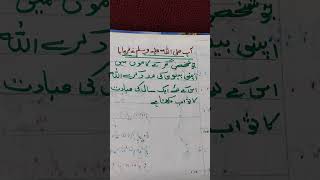 آپ صلی اللہ علیہ وسلم نے فرمایا
جو شخص گھر کے کاموں میں
اپنی بیوی کی مدد کرے اللہ
اس کے لئے ایک سال کی عبادت
کا ثواب لکھتا ہے